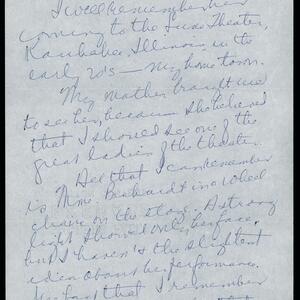 I well remember her
coming to the Luna Theater,
Kankakee, Illinois, in the
early 20's — my home town.
My mother brought me
to see her, because she believed
that I should see one of the
great ladies of the theater.
All that I can remember
is Mme. Bernhardt in a wheel
chair on the stage. A strong
light shone on her face,
but I haven't the slightest
idea about her performance.
The fact that I remember